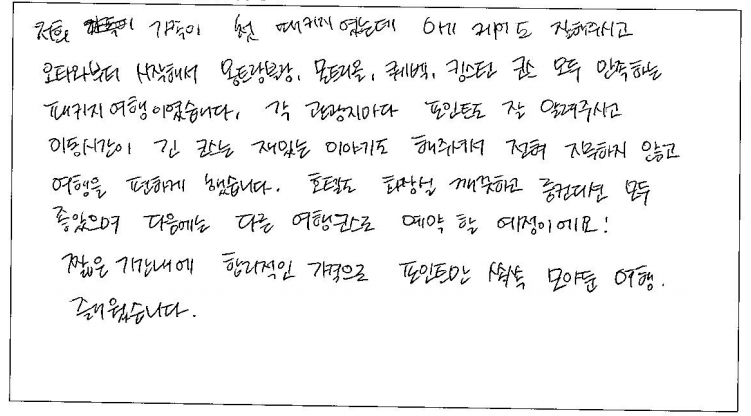 저희 가족이 첫 패키지 였는데 케어도 잘해주시고
오타와부터 시작해서 몽트랑블랑, 몬트리올, 퀘벡, 킹스턴 코스 모두 만족하는
패키지 여행이였습니다. 각 관광지마다 포인트도 잘 알려주시고
이동시간이 긴 코스는 재밌는 이야기도 해주셔서 전혀 지루하지 않고
여행을 편하게 했습니다. 호텔도 화장실 깨끗하고 룸컨디션 모두
좋았으며 다음에는 다른 여행코스로 예약 할 예정이에요!
짧은 기간내에 합리적인 가격으로 포인트만 쏙쏙 모아둔 여행.
즐거웠습니다.